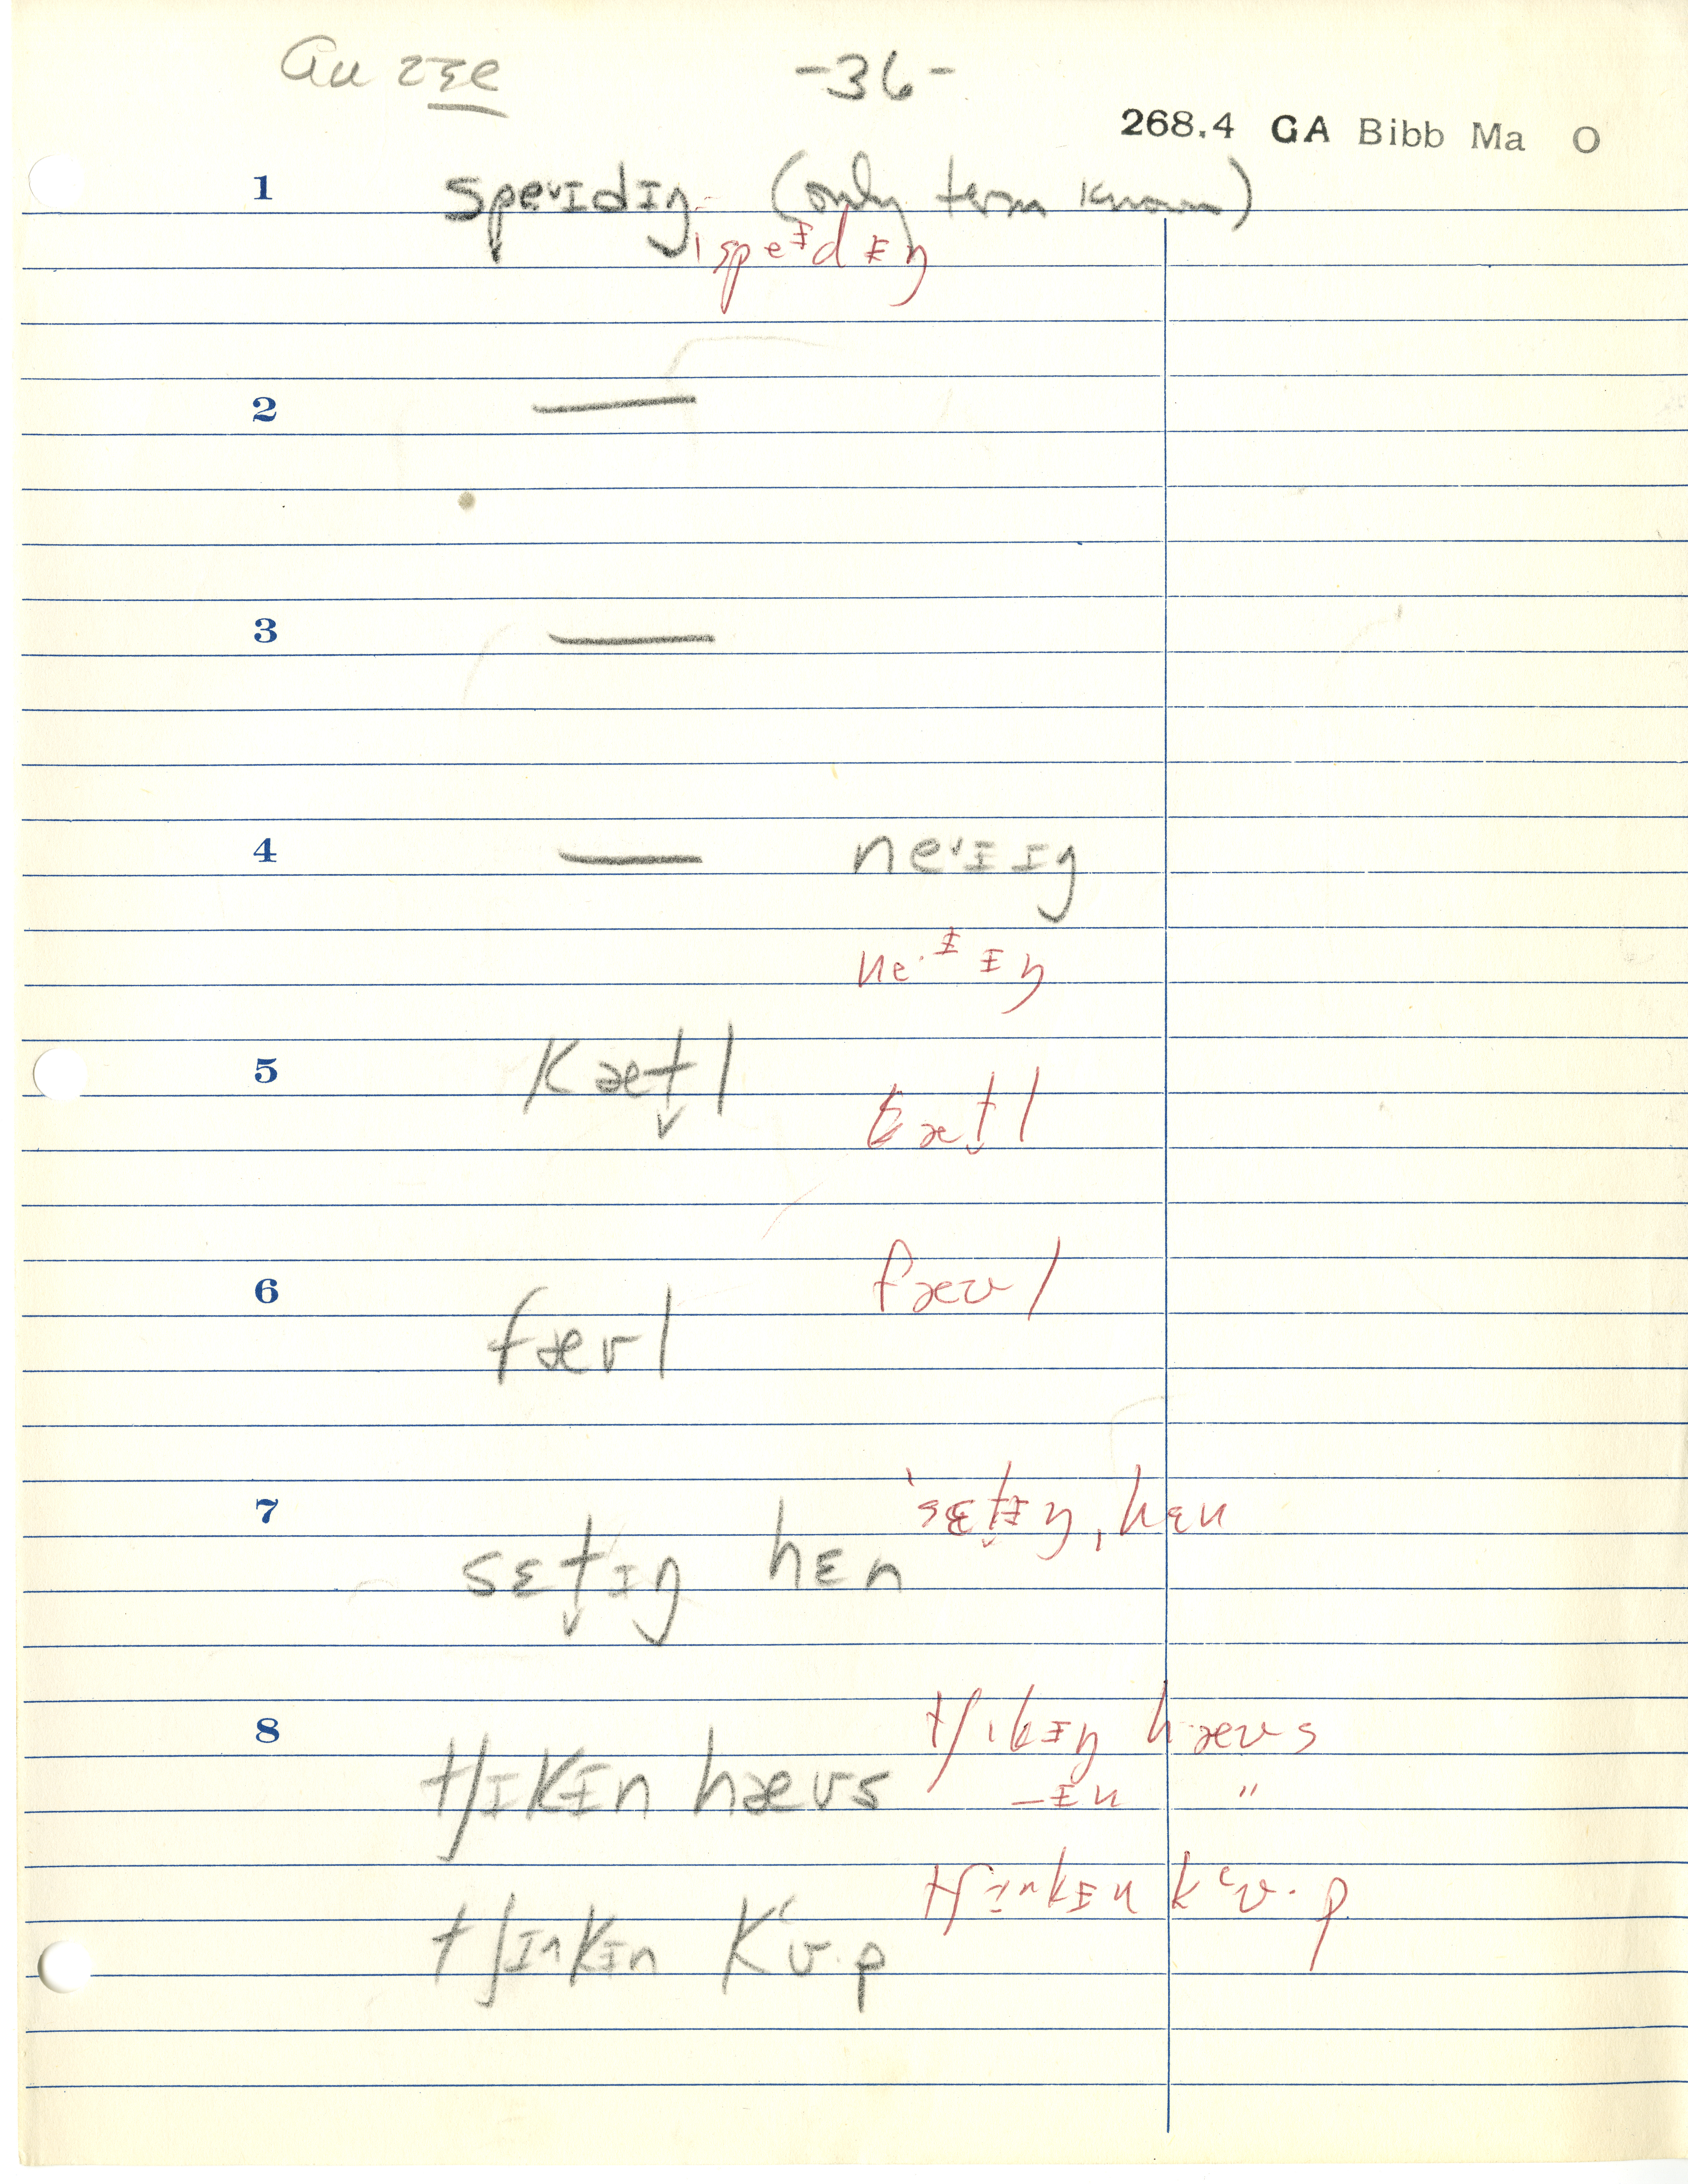 -36-
268.4 GA Bibb Ma O
1 speᵛɪdɪŋ (only term known)
ˈspeᵻdᵻŋ
2 —
3 —
4 — neᵛɪɪŋ
ne·ᵻ ᵻŋ
5 kæt̬l
kæt̬l
6 fæʊl
fæʊl
7 sɛt̬ɪŋ hɛn
ˈsɛt̬ᵻŋ ˌhɛn
8 tʃɪkᵻn hæʊs
tʃɪkᵻŋ hæʊs
–ᵻn "
tʃɪnkᵻn kʻʊ·p
tʃɪnkᵻn kʻʊ·p